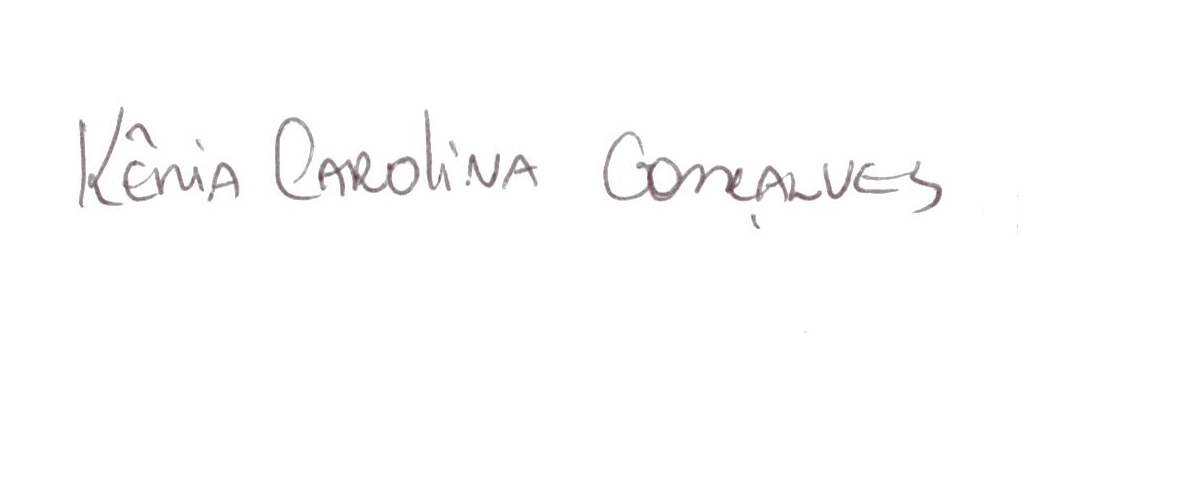 Kênia Carolina Gonçalves